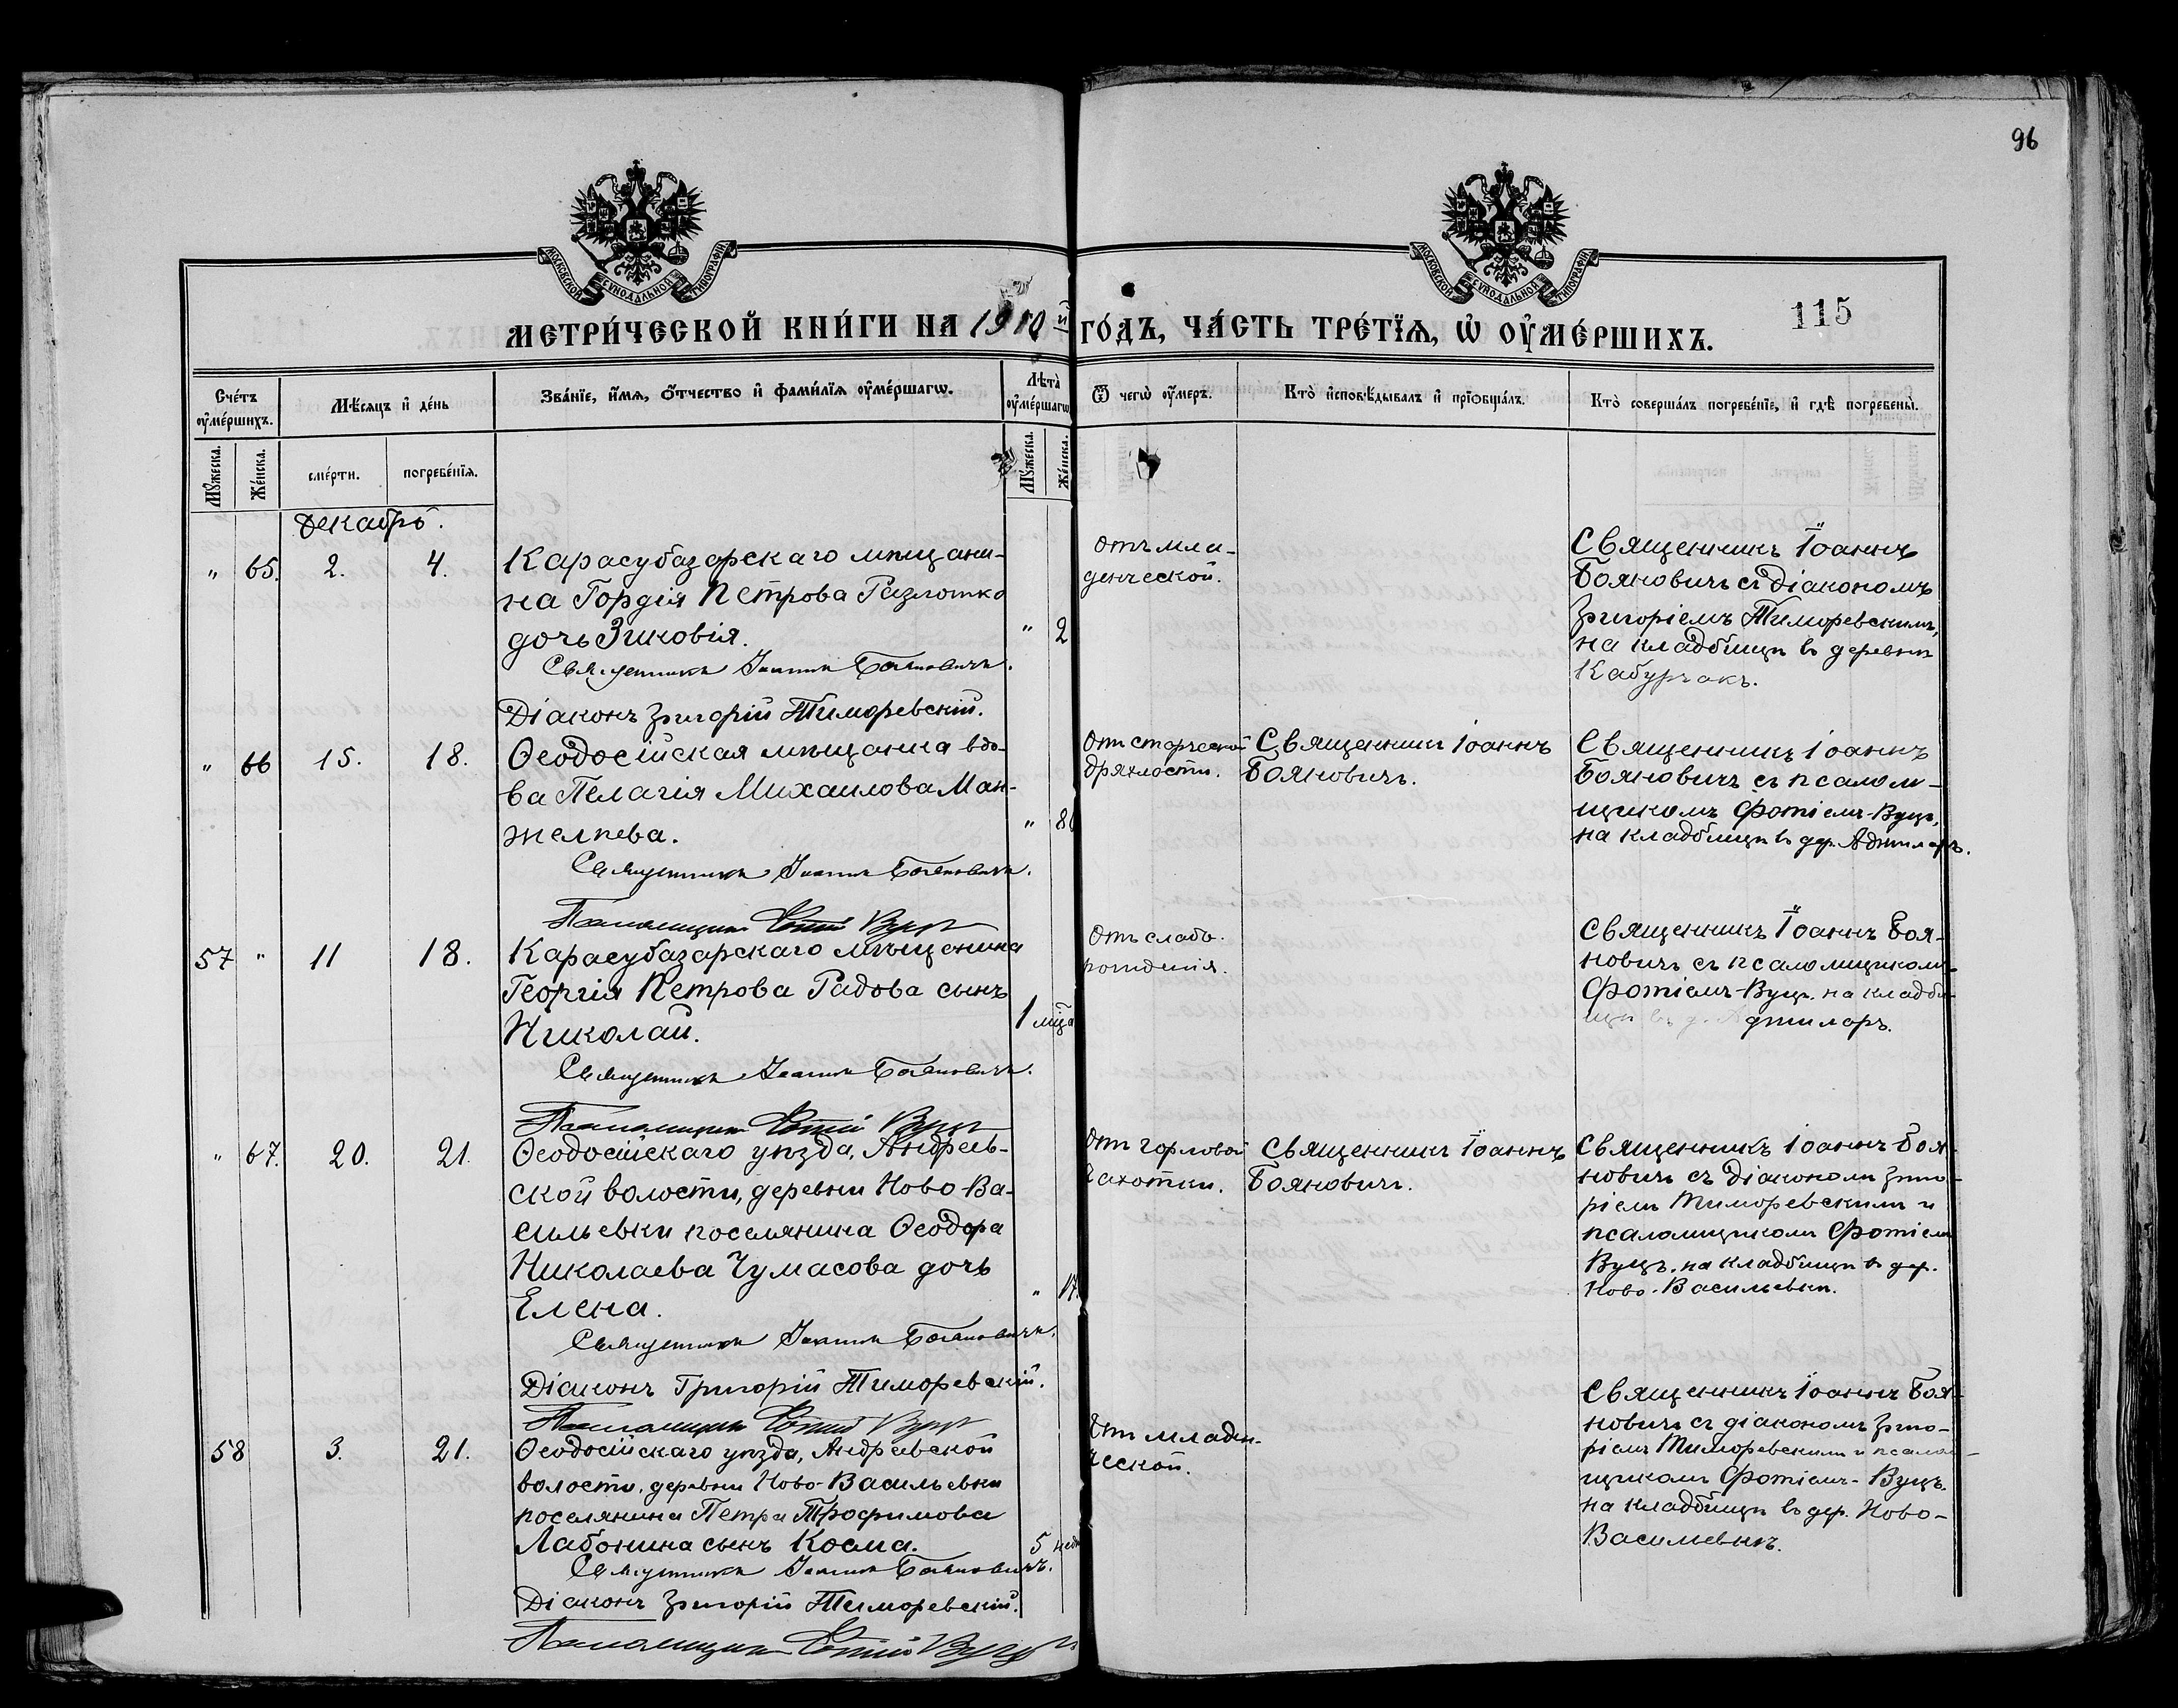 96
115
МОСКОВСКОЙ СѴНОДАЛЬНОЙ ТИПОГРАФІИ
МОСКОВСКОЙ СѴНОДАЛЬНОЙ ТИПОГРАФІИ
МЕТРИ́ЧЕСКОЙ КНИ́ГИ НА 1910й ГО́ДЪ, ЧА́СТЬ ТРЕ́ТЇѦ, Ѡ҆ ОУ҆МЕ́РШИХЪ.
Сче́тъ оу҆ме́ршихъ.
Мѣ́сѧцъ и҆ де́нь
Зва́нїе, и҆́мѧ, ѻ҆́тчество и҆ фами́лїѧ оу҆ме́ршагѡ.
Лѣ́та оу҆ме́ршагѡ
Ѿ чегѡ̀ оу҆́меръ.
Кто̀ и҆сповѣ́дывалъ и҆ прїѡбща́лъ.
Кто̀ соверша́лъ погребе́нїе, и҆ гдѣ̀ погребены̀.
Мꙋ́жеска.
Же́нска.
сме́рти.
погребе́нїѧ.
Мꙋ́жеска.
Же́нска.
Декабрь.
" 65. 2. 4.
Карасубазарскаго мѣщани-
на Гордія Петрова Разлотко
дочь Зиновія.
" 2
Священникъ Іоаннъ Бояновичъ.
Діаконъ Григорій Тиморевскій.
отъ мла-
денческой.
Священникъ Іоаннъ
Бояновичъ съ діакономъ
Григоріемъ Тиморевскимъ,
на кладбищѣ въ деревнѣ
Кабурчакъ.
" 66 15. 18.
Ѳеодосійская мѣщанка вдо-
ва Пелагія Михаилова Ман-
желѣева.
" 8
Священникъ Іоаннъ Бояновичъ.
Псаломщикъ Фотій Вуцъ
отъ старческой
дряхлости.
Священникъ Іоаннъ
Бояновичъ.
Священникъ Іоаннъ
Бояновичъ съ псалом-
щикомъ Фотіемъ Вуцъ,
на кладбищѣ въ дер. Аджиларъ.
57 " 11 18.
Карасубазарскаго мѣщанина
Георгія Петрова Радова сынъ
Николай.
1 мца
Священникъ Іоаннъ Бояновичъ.
Псаломщикъ Фотій Вуцъ
отъ слабо-
рожденія.
Священникъ Іоаннъ Боя-
новичъ съ псаломщикомъ
Фотіемъ Вуцъ. на кладби-
щѣ въ д. Аджиларъ.
" 67. 20. 21.
Ѳеодосійскаго уѣзда, Андреев-
ской волости, деревни Ново-Ва-
сильевки поселянина Ѳеодора
Николаева Чумасова дочь
Елена.
" 17.
Священникъ Іоаннъ Бояновичъ.
Діаконъ Григорій Тиморевскій.
Псаломщикъ Фотій Вуцъ
отъ горловой
чахотки.
Священникъ Іоаннъ
Бояновичъ.
Священникъ Іоаннъ Боя-
новичъ съ діакономъ Григо-
ріемъ Тиморевскимъ и
псаломщикомъ Фотіемъ
Вуцъ. на кладбищѣ въ дер.
Ново-Васильевки.
58 3. 21.
Ѳеодосійскаго уѣзда, Андреевской
волости, деревни Ново-Васильевки
поселянина Петра Трофимова
Лабонина сынъ Косма.
5 нед
Священникъ Іоаннъ Бояновичъ.
Діаконъ Григорій Тиморевскій.
Псаломщикъ Фотій Вуцъ
отъ младен-
ческой.
Священникъ Іоаннъ Боя-
новичъ съ діакономъ Григо-
ріемъ Тиморевскимъ и псалом-
щикомъ Фотіемъ Вуцъ.
на кладбищѣ въ дер. Ново-
Васильевкѣ.